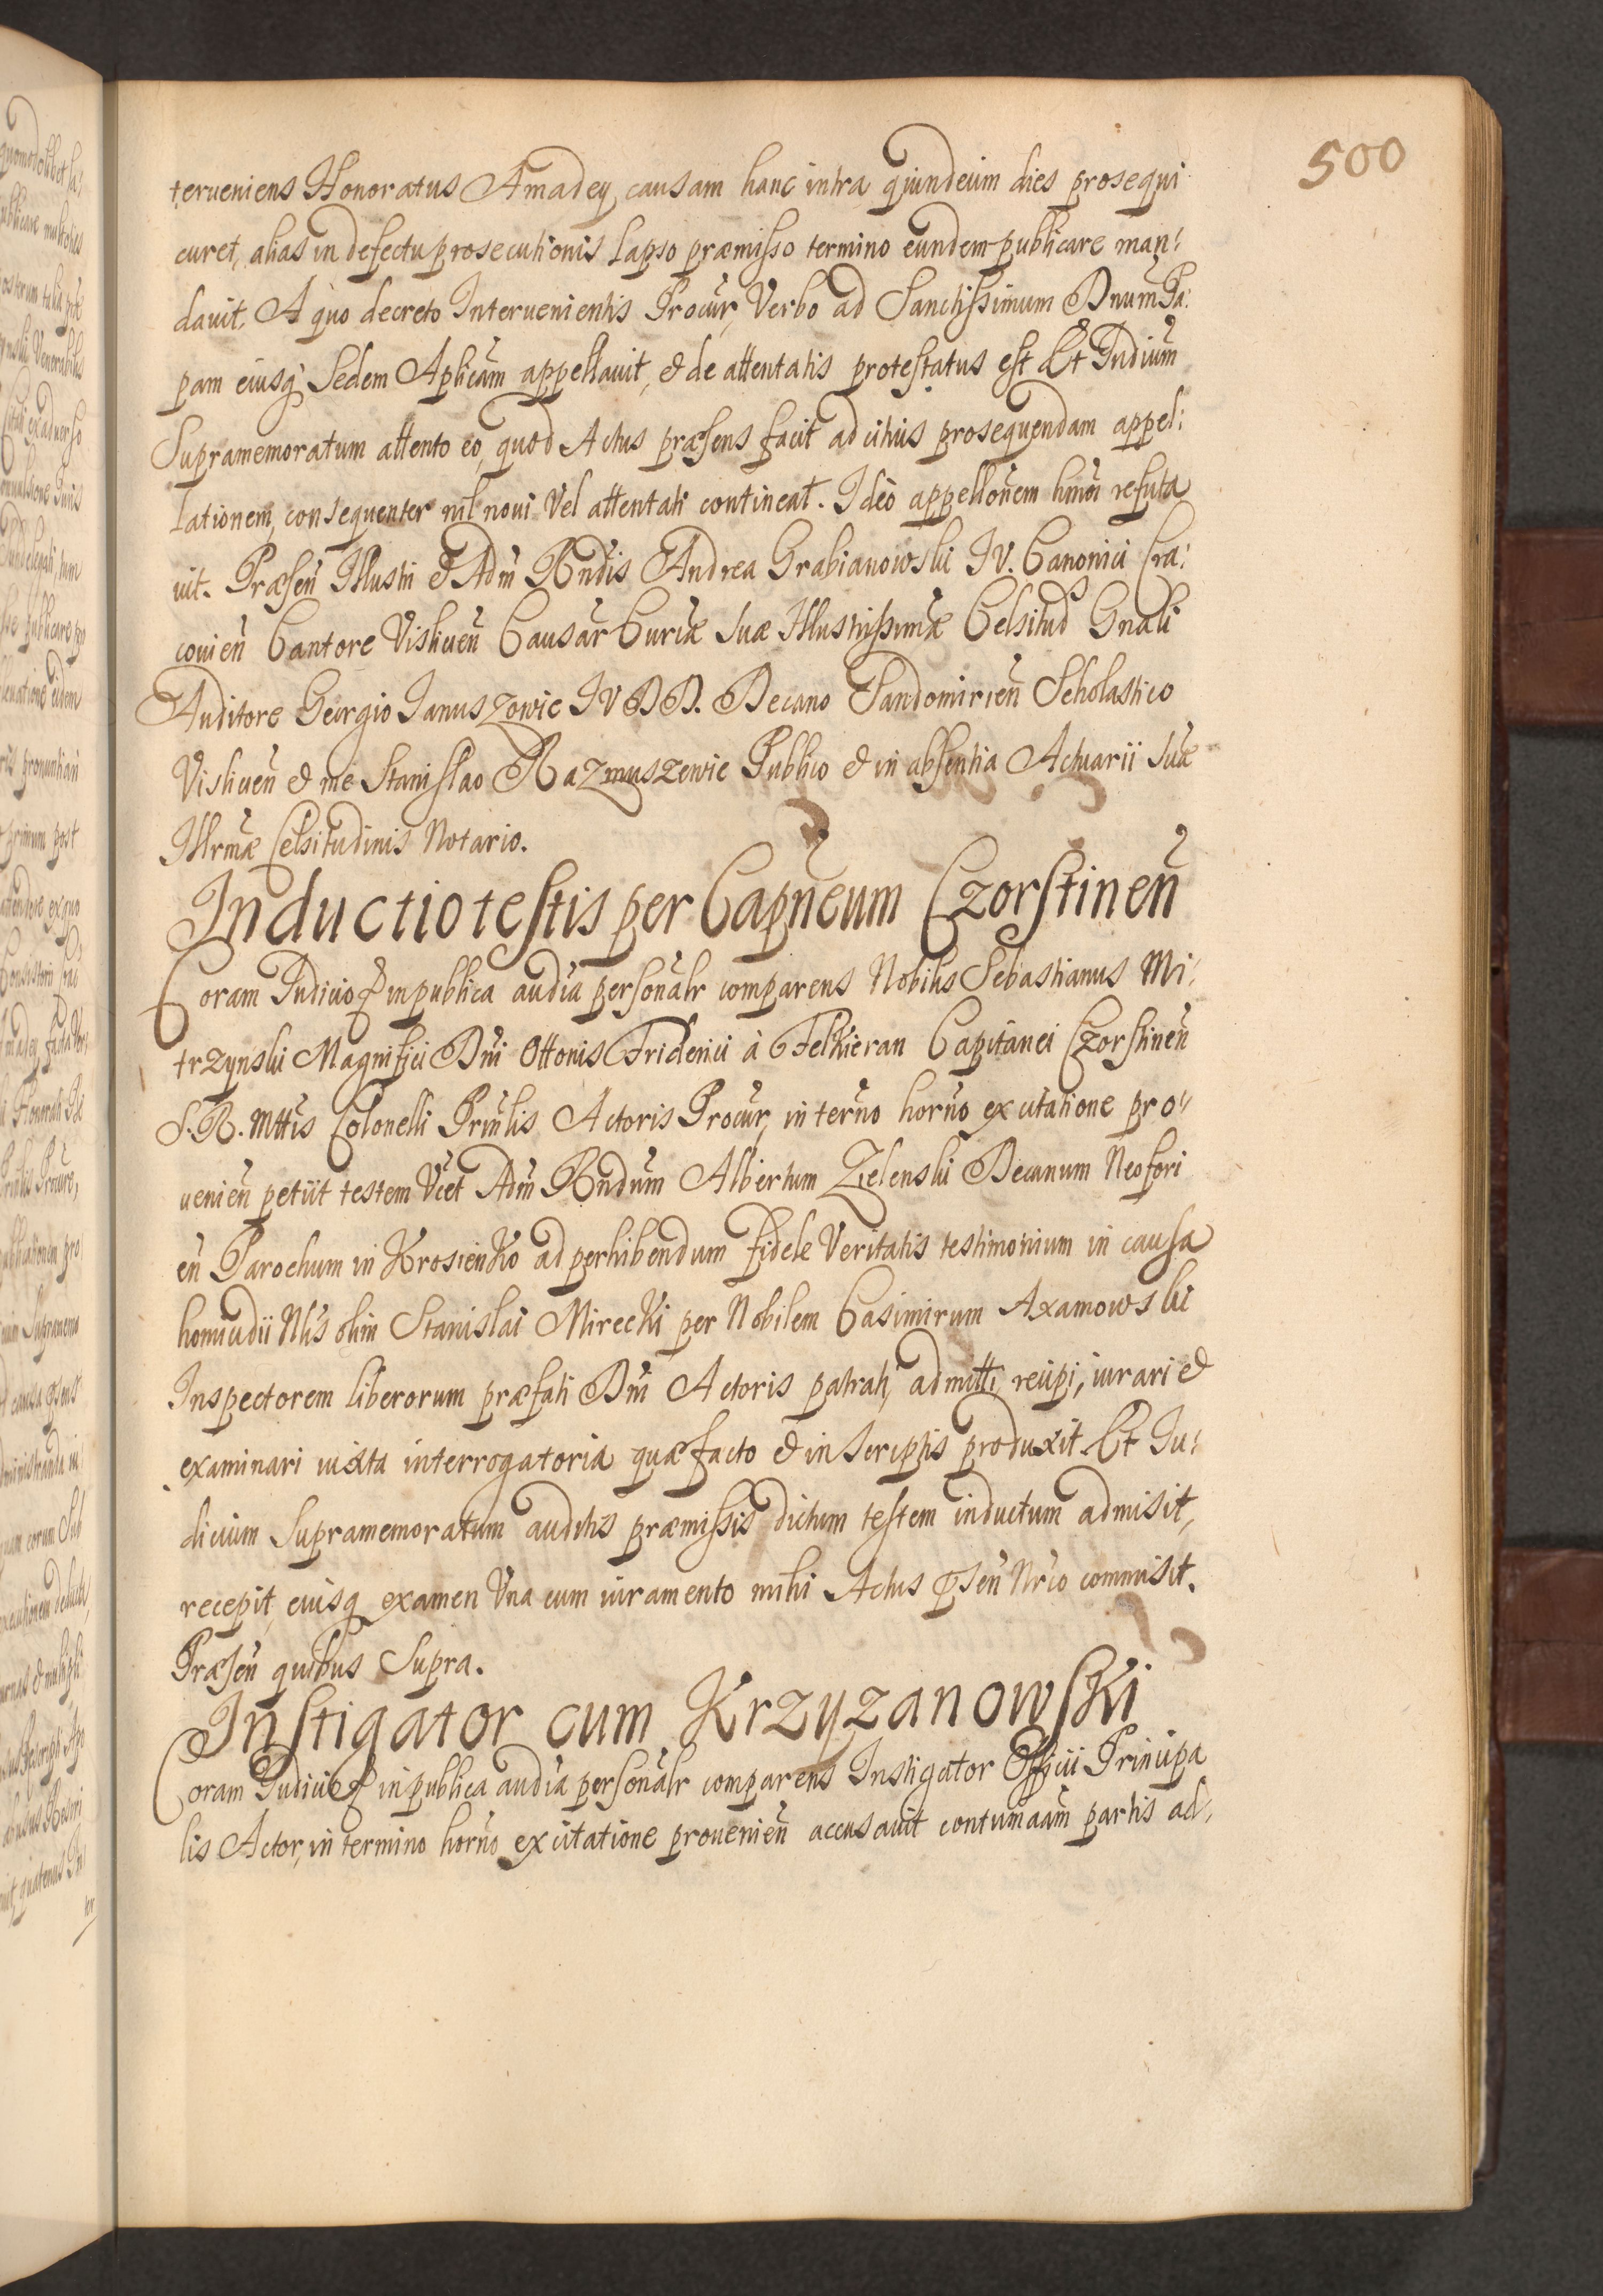 500
terueniens Honoratus Amadey, causam hanc intra quindecim dies prosequi
curet, alias in defectu prosecutionis lapso præmisso termino eundem publicare man:
dauit. A quo decreto Interuenientis Procur, Verbo ad Sanctissimum Dnum Pa:
pam eiusq́ Sedem Aplicam appellauit, & de attentatis protestatus est Et Iudium
Supramemoratum attento eo, quod Actus præsens facit ad citius prosequendam appel:
lationem, consequenter nil noui Vel attentati contineat. Ideo appellonem hmoi refuta
uit. Præsen Illustri & Adm Rndis Andrea Grabianowski I V. Canonici Cra:
couien Cantore Visliuen Causar Curiæ Suæ Illustrissimæ Celsitud Gnali
Auditore Georgio Ianuszowic I V D D. Decano Sandomirien Scholastico
Visliuen & me Stanislao Razmuszewic Publico & in absentia Actuarii Suæ
Illrmæ Celsitudinis Notario.
Inductio testis per Capneum Czorstinen
Coram Iudicio & in publica audia personalr comparens Nobilis Sebastianus Mi:
trzynski Magnifici Dni Ottonis Friderici à Felkieran Capitanei Czorstinen
S. R. Mttis Colonelli Prinlis Actoris Procur, in terno horno ex citatione pro:
uenien petiit testem Vcet Adm Rndum Albertum Zielenski Decanum Neofori
en Parochum in Krosienko ad perhibendum fidele Veritatis testimonium in causa
homicidii Nlis olim Stanislai Mirecki per Nobilem Casimirum Axamowski
Inspectorem liberorum præfati Dni Actoris patrati, admitti, recipi, iurari &
examinari iuxta interrogatoria quæ facto & in Scriptis produxit Et Iu:
dicium Supramemoratum auditis præmissis dictum testem inductum admisit,
recepit, eiusq examen Vna cum iuramento mihi Actus psen Nrio commisit.
Præsen quibus Supra.
Instigator cum Krzyzanowski
Coram Iudicio & in publica audia personalr comparens Instigator Officii Principa
lis Actor, in termino horno ex citatione prouenien accusauit contumaam partis ad: